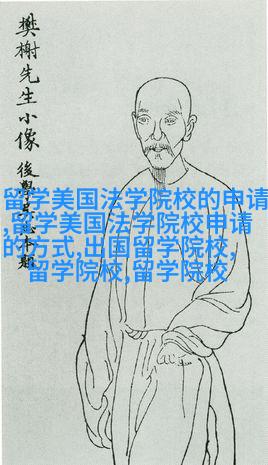 樊榭先生小像
後學
本題
留学美国法学院校的申请
,留学美国法学院校申请
的方式,出国留学院校,
留学院校,留学院校